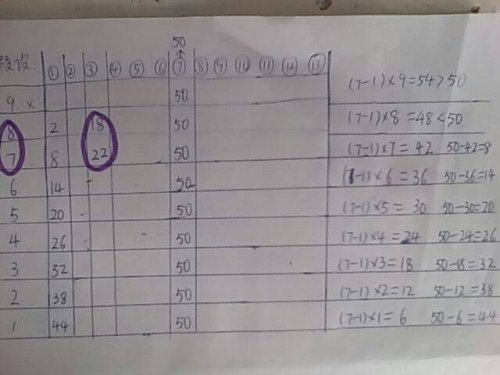 50
↑
假设 ① ② ③ ④ ⑤ ⑥ ⑦ ⑧ ⑨ ⑩ ⑪ ⑫ ⑬
9 × 50 (7-1)×9=54>50
8 2 18 50 (7-1)×8=48<50
7 8 22 50 (7-1)×7=42 50-42=8
6 14 50 (7-1)×6=36 50-36=14
5 20 50 (7-1)×5=30 50-30=20
4 26 50 (7-1)×4=24 50-24=26
3 32 50 (7-1)×3=18 50-18=32
2 38 50 (7-1)×2=12 50-12=38
1 44 50 (7-1)×1=6 50-6=44